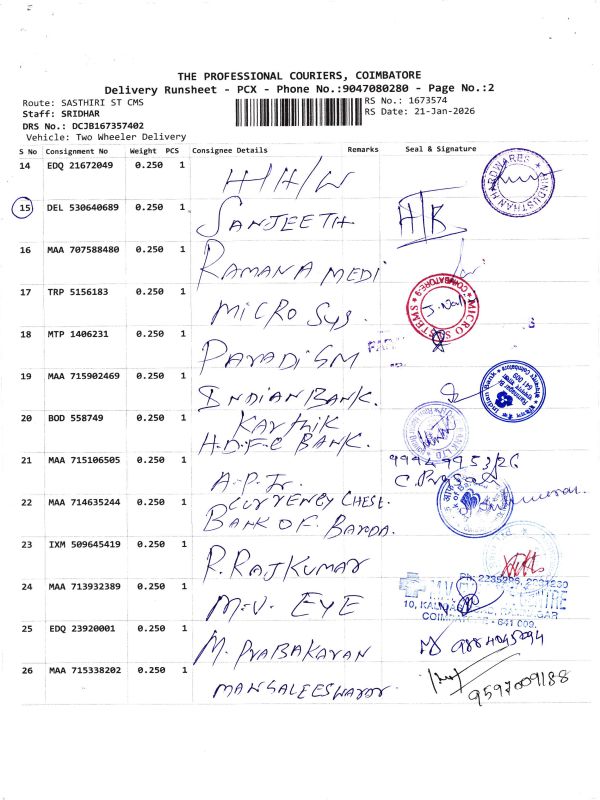 THE PROFESSIONAL COURIERS, COIMBATORE
Delivery Runsheet - PCX - Phone No.:9047080280 - Page No.:2
Route: SASTHIRI ST CMS
RS No.: 1673574
Staff: SRIDHAR
RS Date: 21-Jan-2026
DRS No.: DCJB167357402
Vehicle: Two Wheeler Delivery
S No Consignment No Weight PCS Consignee Details Remarks Seal & Signature
14 EDQ 21672049 0.250 1 H/H/W
HINDUSTHAN HARDWARES
15 DEL 530640689 0.250 1 SANJEETH H/B
16 MAA 707588480 0.250 1 RAMANA MEDI
17 TRP 5156183 0.250 1 MICRO SYS.
MICRO SYSTEMS COIMBATORE-9
18 MTP 1406231 0.250 1 PARADISM
19 MAA 715902469 0.250 1 INDIAN BANK.
20 BOD 558749 0.250 1 Karthik
H.D.F.C BANK.
21 MAA 715106505 0.250 1 A.P.Jr.
99949 9953/26
22 MAA 714635244 0.250 1 CURRENCY CHEST.
BANK OF BARDA.
23 IXM 509645419 0.250 1 R. RAJKUMAR
24 MAA 713932389 0.250 1 M.V. EYE
COIMBATORE - 641 009.
25 EDQ 23920001 0.250 1 M. PRABAKARAN
26 MAA 715338202 0.250 1 MANGALEESWARAR.
9597009188